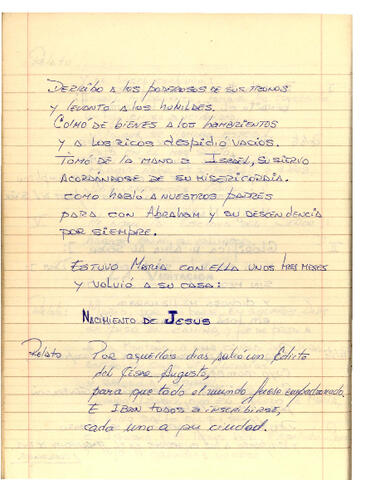 DERRIBO A LOS PODEROSOS DE SUS TRONOS
Y LEVANTÓ A LOS HUMILDES.
COLMÓ DE BIENES A LOS HAMBRIENTOS
Y A LOS RICOS DESPIDIÓ VACIOS.
TOMÓ DE LA MANO A ISRAEL, SU SIERVO
ACORDÁNDOSE DE SU MISERICORDIA.
COMO HABLÓ A NUESTROS PADRES
PARA CON ABRAHAM Y SU DESCENDENCIA
POR SIEMPRE.
ESTUVO MARÍA CON ELLA UNOS TRES MESES
Y VOLVIÓ A SU CASA:
NACIMIENTO DE JESUS
Relato Por aquellos dias salió un Edicto
del César Augusto,
para que todo el mundo fuese empadronado.
E IBAN TODOS A INSCRIBIRSE,
cada uno a su ciudad.